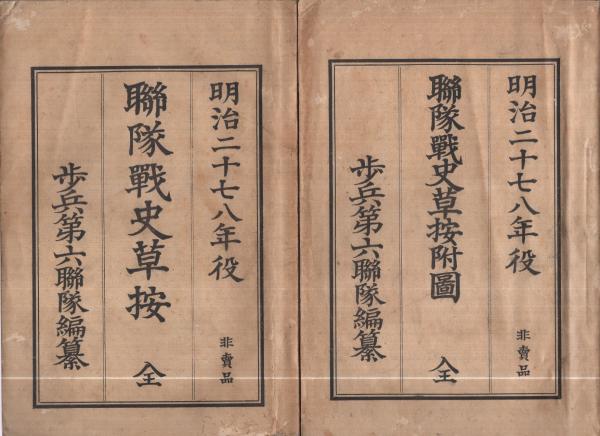 明治二十七八年役
非賣品
聯隊戰史草按附圖
全
步兵第六聯隊編纂
明治二十七八年役
非賣品
聯隊戰史草按
全
步兵第六聯隊編纂